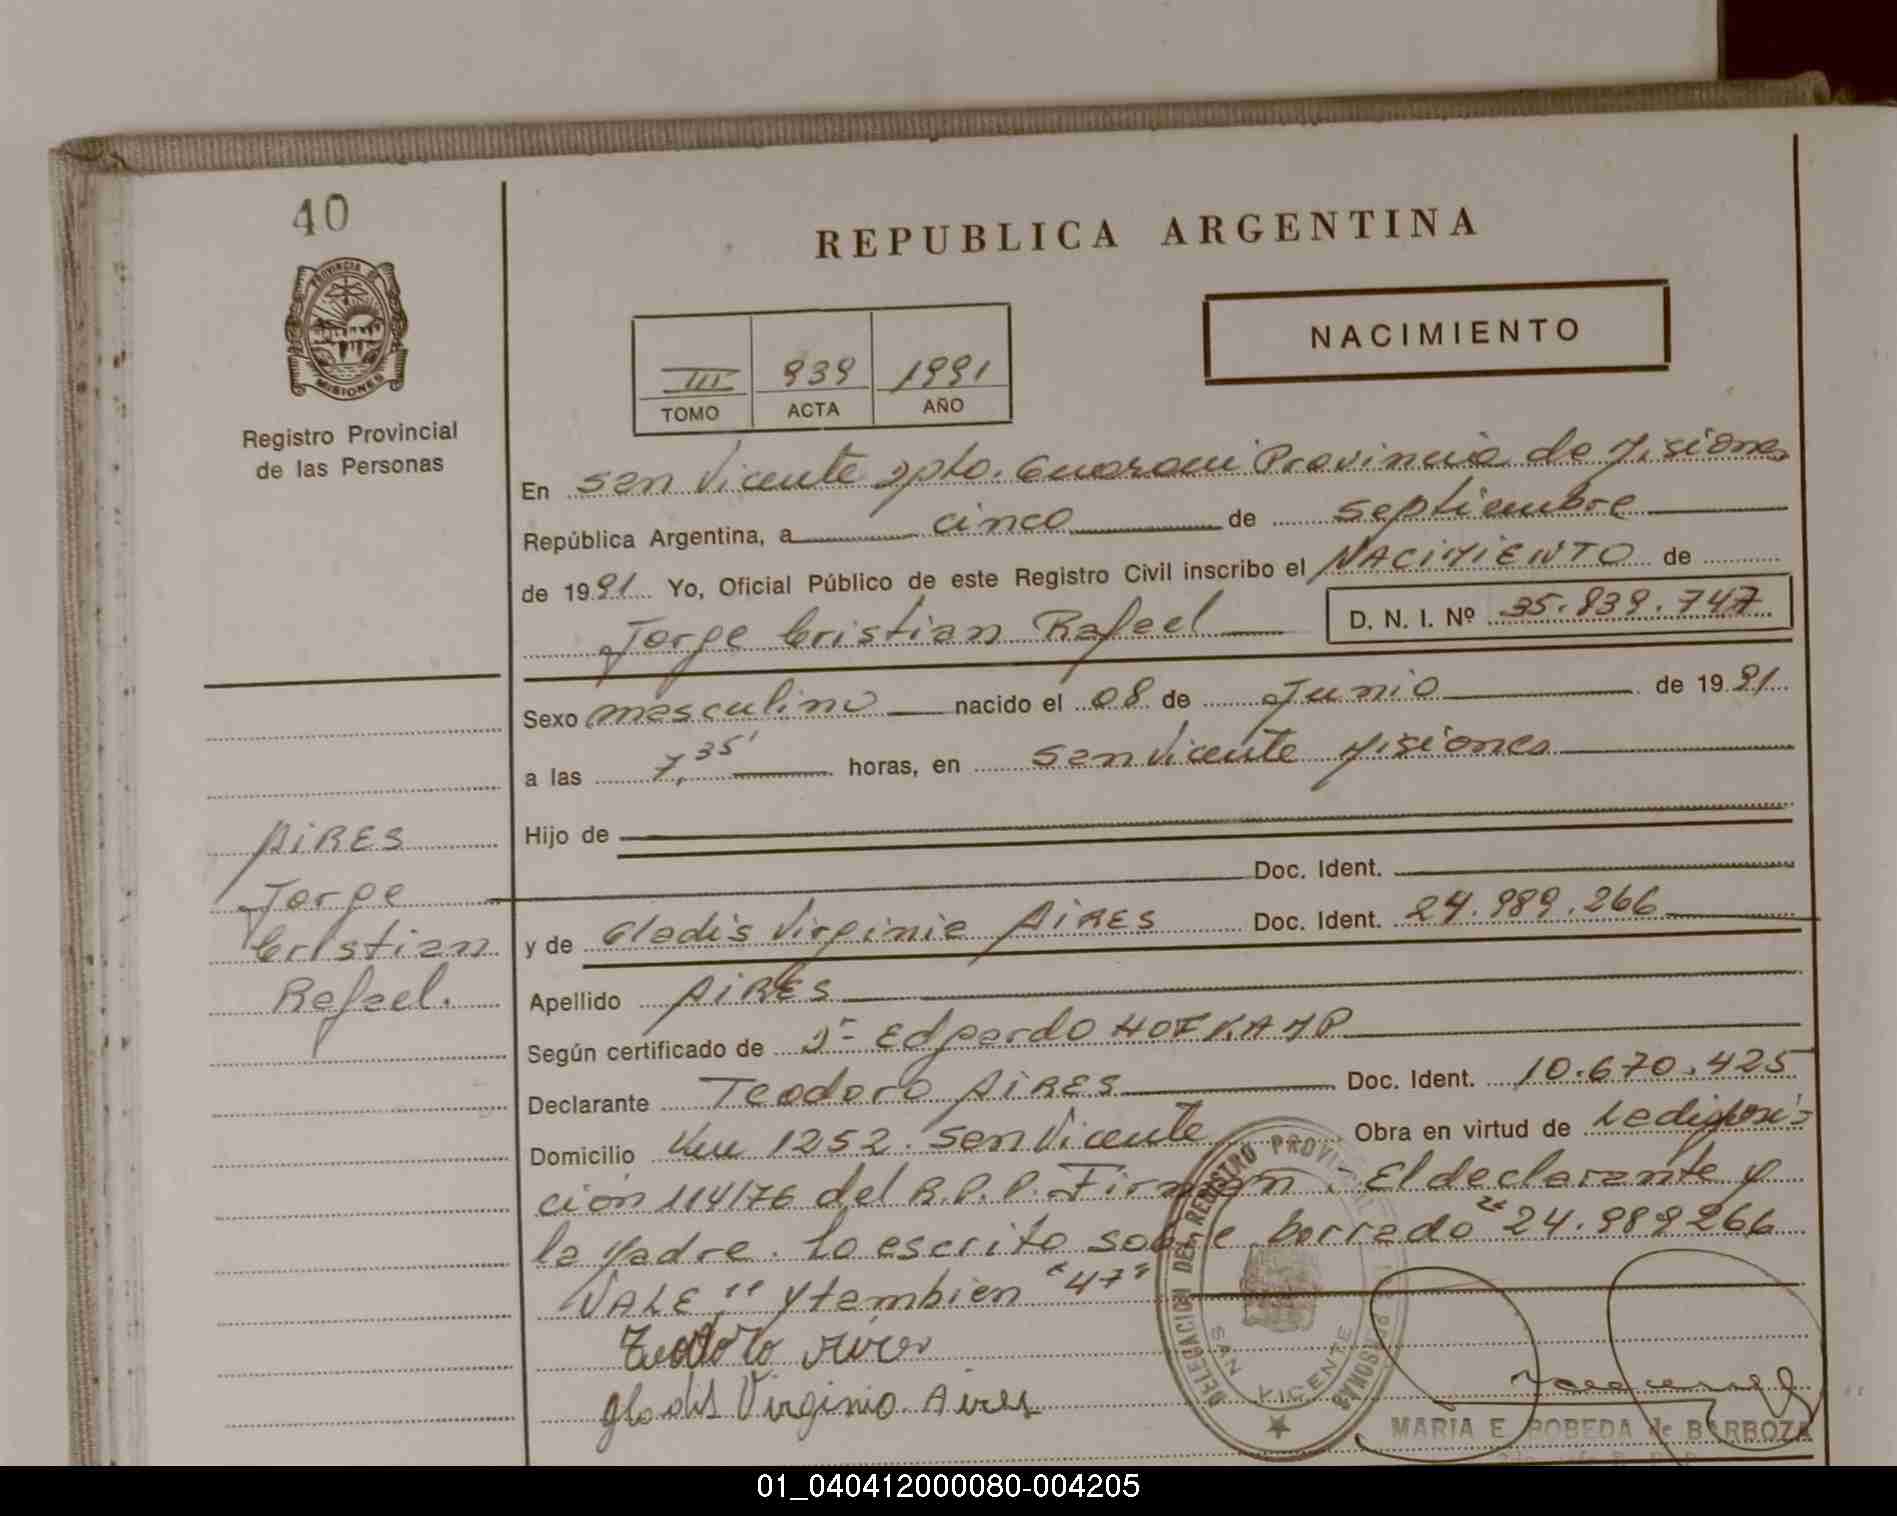 40
PROVINCIA DE
MISIONES
Registro Provincial
de las Personas
REPUBLICA ARGENTINA
NACIMIENTO
III 939 1991
TOMO ACTA AÑO
En San Vicente Dpto. Guarani Provincia de Misiones
República Argentina, a cinco de septiembre
de 1991 Yo, Oficial Público de este Registro Civil inscribo el NACIMIENTO de
Jorge Cristian Rafael D. N. I. Nº 35.939.747
Sexo masculino nacido el 08 de Junio de 1991
a las 7,35' horas, en San Vicente Misiones
Hijo de
Doc. Ident.
y de Gladis Virginia AIRES Doc. Ident. 24.989.266
Apellido AIRES
Según certificado de Dr Edgardo HOFKAMP
Declarante Teodoro AIRES Doc. Ident. 10.670.425
Domicilio Km 1252. San Vicente Obra en virtud de La disposi-
ción 114/76 del R.P.P. Firman: El declarante y
la Madre. Lo escrito sobre borrado "24.989266
VALE" y tambien "47"
Teodoro Aires
gladis Virginia Aires
AIRES
Jorge
Cristian
Rafael.
DELEGACION DEL REGISTRO PROVINCIAL DE LAS PERSONAS
SAN VICENTE
MARIA E. ROBEDA de BARBOZA
01_040412000080-004205